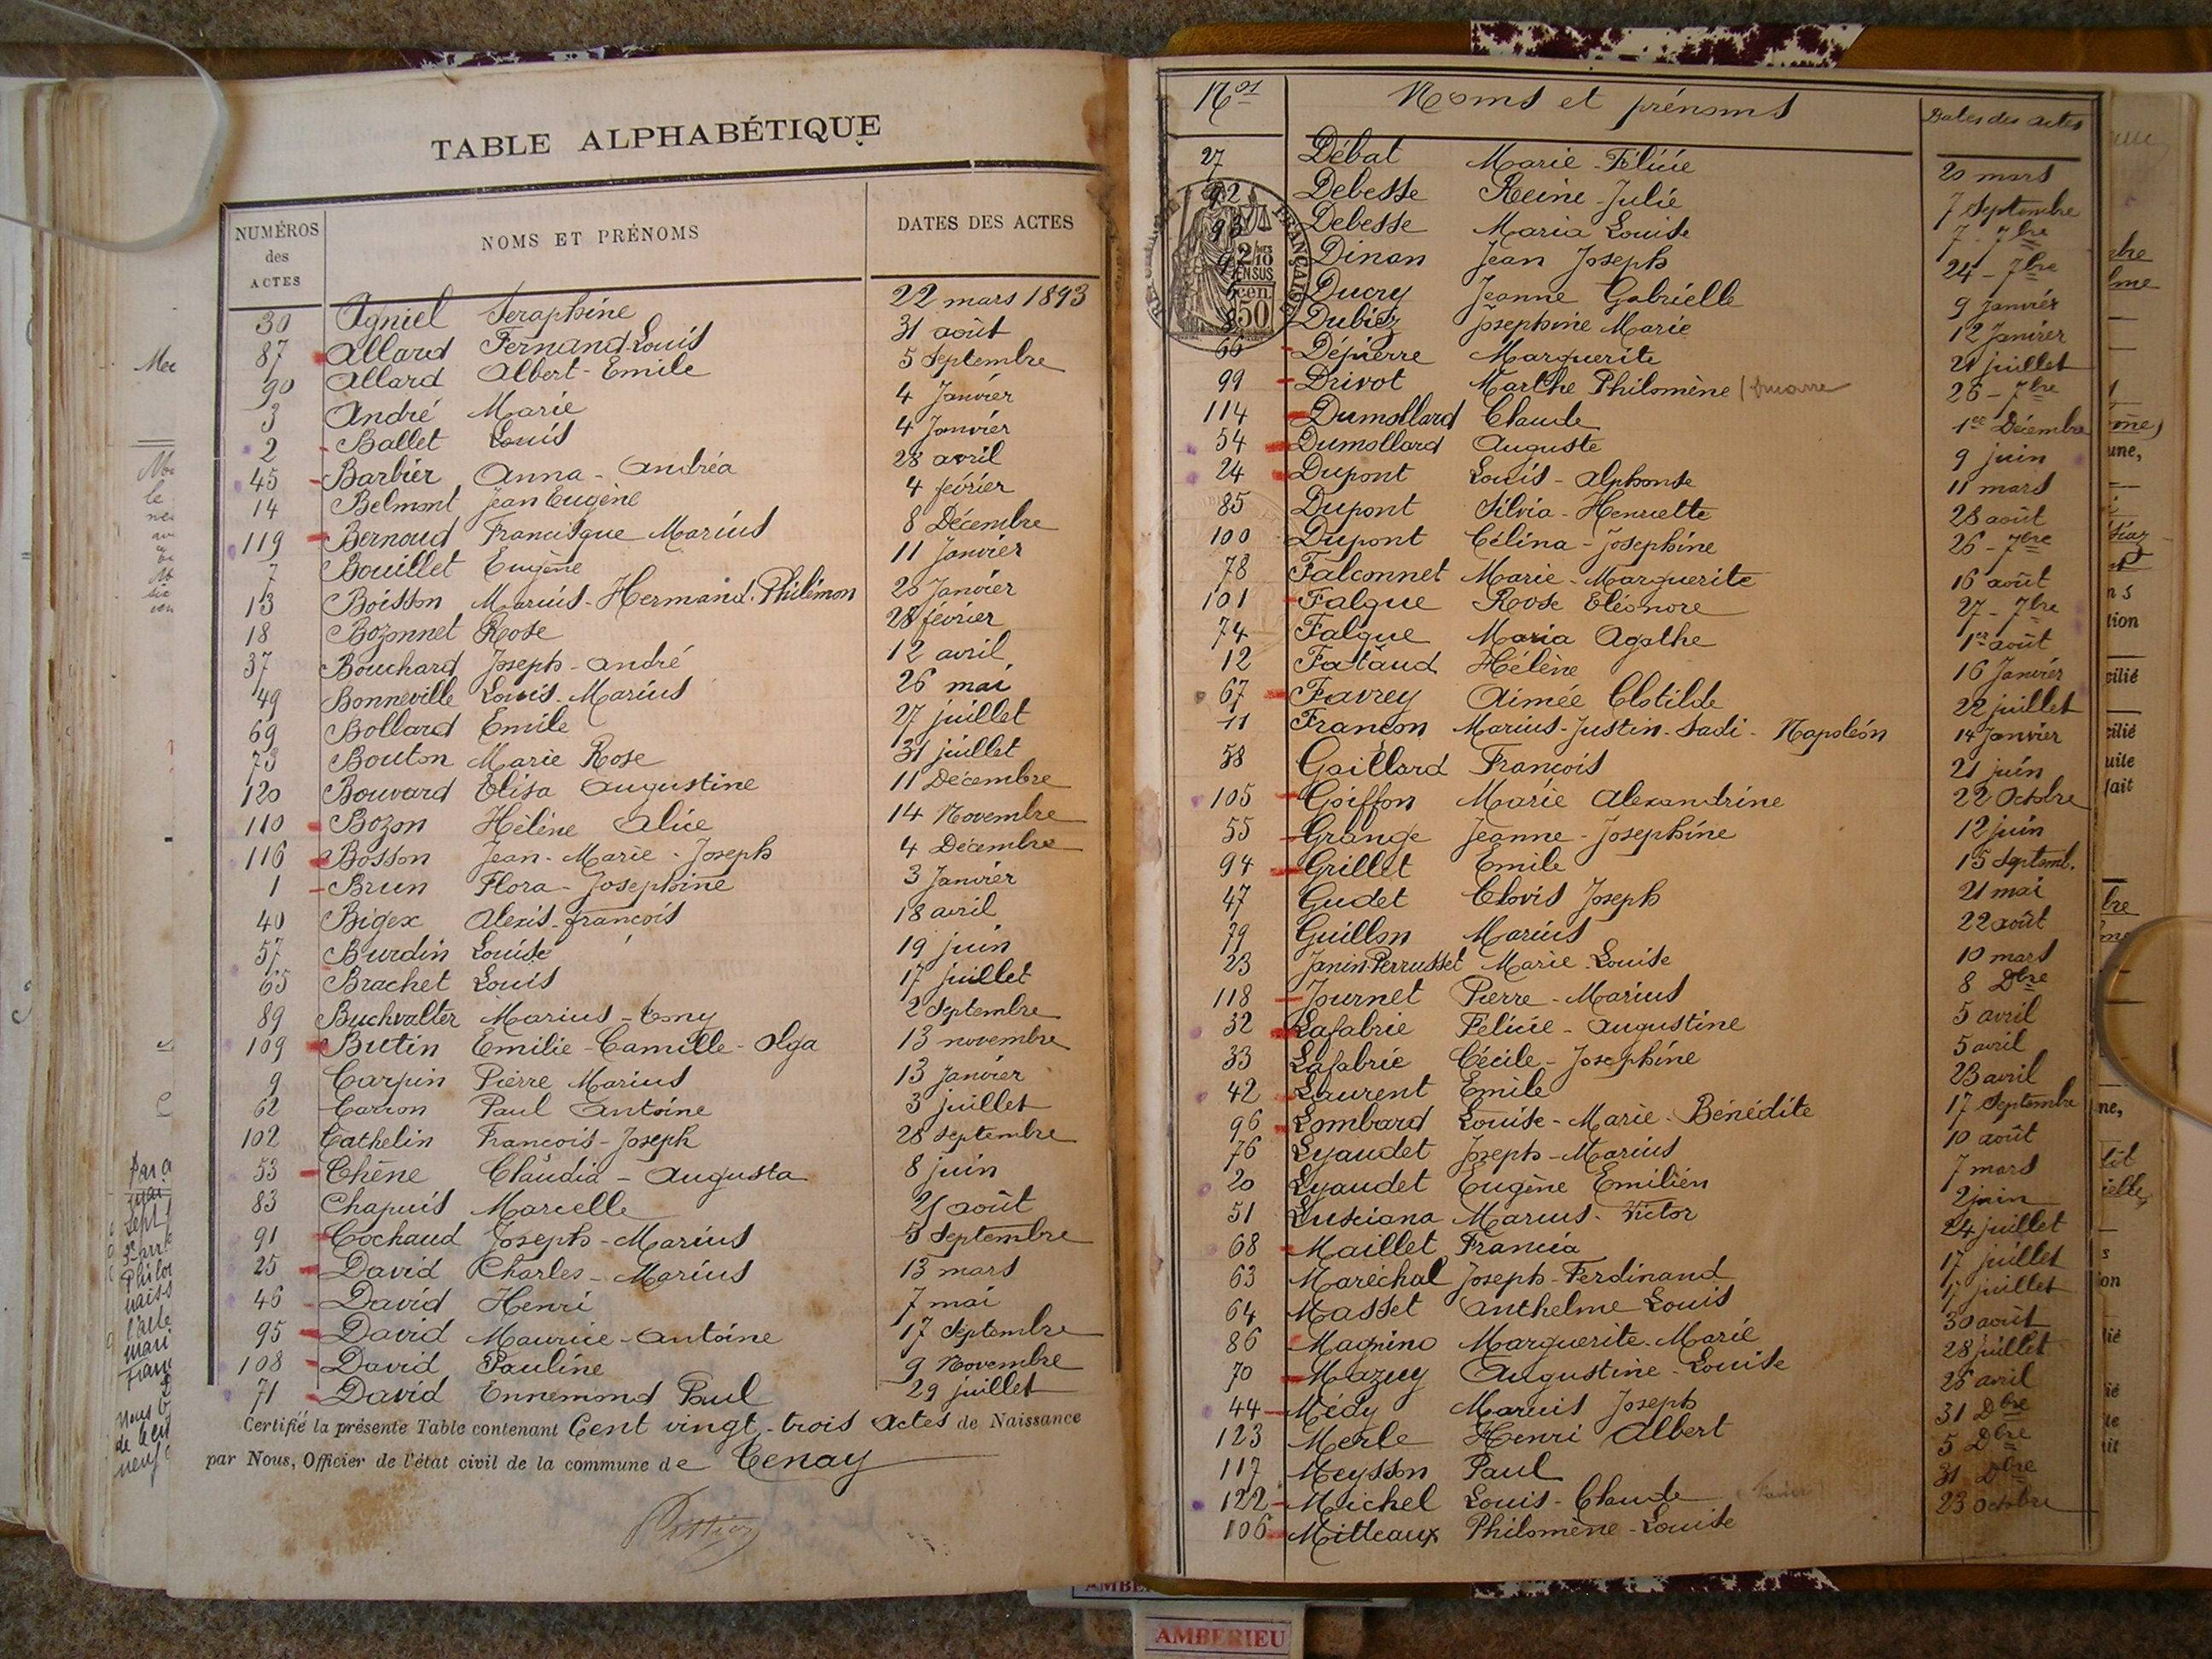 TABLE ALPHABÉTIQUE
NUMÉROS des ACTES NOMS ET PRÉNOMS DATES DES ACTES
30 Agniel Seraphine 22 mars 1893
87 Allard Fernand-Louis 31 août
90 Allard Albert-Emile 5 Septembre
3 André Marie 4 Janvier
2 Ballet Louis 4 Janvier
45 Barbier Anna-Andréa 28 avril
14 Belmont Jean Eugène 4 février
119 Bernoud Francisque Marius 8 Décembre
7 Bouillet Eugène 11 Janvier
13 Boisson Marius-Hermand-Philémon 20 Janvier
18 Bozonnet Rose 28 février
37 Bouchard Joseph-André 12 avril
49 Bonneville Louis-Marius 26 mai
69 Bollard Emile 27 juillet
73 Bouton Marie Rose 31 juillet
120 Bouvard Elisa Augustine 11 Décembre
110 Bozon Hélène Alice 14 Novembre
116 Bosson Jean-Marie-Joseph 4 Décembre
1 Brun Flora-Josephine 3 Janvier
40 Bigex Alexis-françois 18 avril
57 Burdin Louise 19 juin
65 Brachet Louis 17 juillet
89 Buchvalter Marius- 2 Septembre
109 Butin Emilie-Camille-Olga 13 novembre
9 Carpin Pierre Marius 13 Janvier
62 Carron Paul Antoine 3 juillet
102 Cathelin François-Joseph 28 Septembre
53 Chêne Claudia-Augusta 8 juin
83 Chapuis Marcelle 21 août
91 Cochaud Joseph-Marius 5 Septembre
25 David Charles-Marius 13 mars
46 David Henri 7 mai
95 David Maurice-Antoine 17 Septembre
108 David Pauline 9 Novembre
71 David Ennemond Paul 29 juillet
Certifié la présente Table contenant Cent vingt-trois actes de Naissance
par Nous, Officier de l'état civil de la commune de Tenay
Nos Noms et prénoms Dates des actes
27 Débat Marie-Félicie 20 mars
92 Debesse Reine-Julie 7 Septembre
93 Debesse Maria Louise 7 - 7bre
Dinan Jean Joseph 24 - 7bre
Ducry Jeanne Gabrielle 9 Janvier
Dubiez Josephine Marie 12 Janvier
66 Dépierre Marguerite 21 juillet
99 Drivot Marthe Philomène 26 - 7bre
114 Dumollard Claude 1er Décembre
54 Dumollard Auguste 9 juin
24 Dupont Louis-Alphonse 11 mars
85 Dupont Silvia-Henriette 28 août
100 Dupont Célina-Josephine 26 - 7bre
78 Falconnet Marie-Marguerite 16 août
101 Falque Rose Eléonore 27 - 7bre
74 Falque Maria Agathe 1er août
12 Fataud Hélène 16 Janvier
67 Favrey Aimée Clotilde 22 juillet
11 Françon Marius-Justin-Sadi-Napoléon 14 Janvier
58 Gaillard François 21 juin
105 Goiffon Marie Alexandrine 22 Octobre
55 Grange Jeanne-Josephine 12 juin
94 Grillet Emile 15 Septemb.
47 Gudet Clovis Joseph 21 mai
79 Guillon Marius 22 août
23 Janin-Perrusset Marie-Louise 10 mars
118 Journet Pierre-Marius 8 Dbre
32 Lafabrie Felicie-Augustine 5 avril
33 Lafabrie Cécile-Josephine 5 avril
42 Laurent Emile 23 avril
96 Lombard Louise-Marie-Bénédite 17 Septembre
76 Lyaudet Joseph-Marius 10 août
20 Lyaudet Eugène Emilien 7 mars
51 Lusciana Marius-Victor 2 juin
68 Maillet Francia 24 juillet
63 Maréchal Joseph-Ferdinand 17 juillet
64 Masset Anthelme Louis juillet
86 Magnino Marguerite-Marie 30 août
70 Mazuy Augustine-Louise 28 juillet
44 Médy Marius Joseph 26 avril
123 Merle Henri Albert 31 Dbre
117 Meysson Paul 5 Dbre
122 Michel Louis-Claude 31 Dbre
106 Mitteaux Philomène-Louise 23 Octobre
AMBERIEU